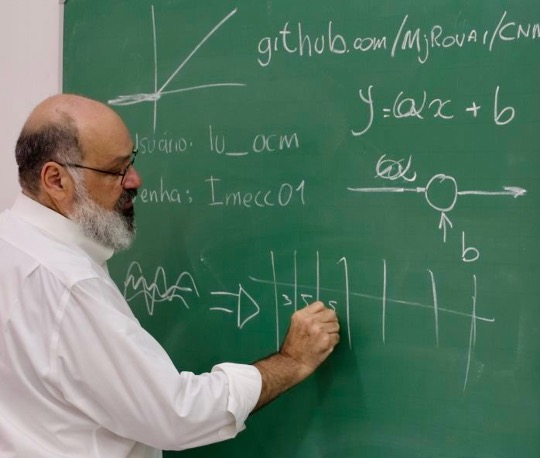 github.com/MjRovai/CNN
y = ax + b
usuário: lu_ocm
senha: Imecc01
b
3 5